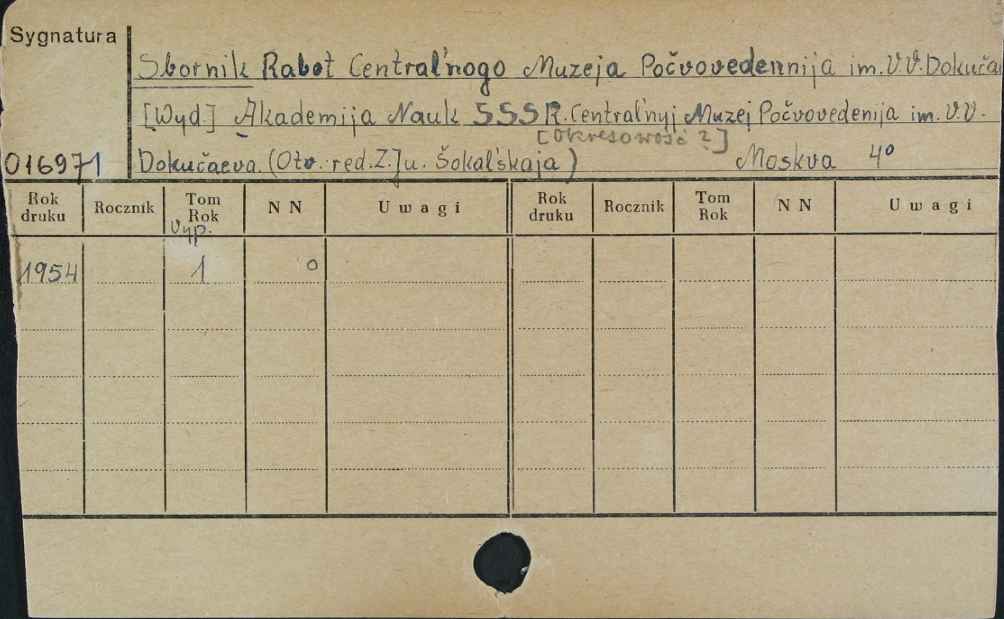 Sygnatura
Sbornik Rabot Central'nogo Muzeja Počvovedennija im. V.V. Dokuča
[Wyd.] Akademija Nauk SSSR. Central'nyj Muzej Počvovedenija im. V.V.
[Okresowość ?]
016971 Dokučaeva. (Otv. red. Z.Ju. Šokal'skaja) Moskva 4º
Rok druku Rocznik Tom Rok N N Uwagi Rok druku Rocznik Tom Rok N N Uwagi
Vyp.
1954 1 o